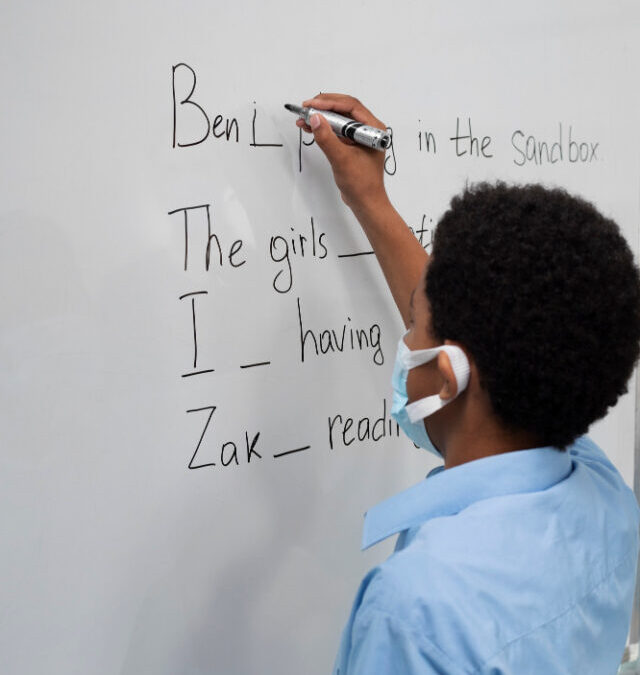 Ben i_ in the sandbox.
The girls _
I _ having
Zak _